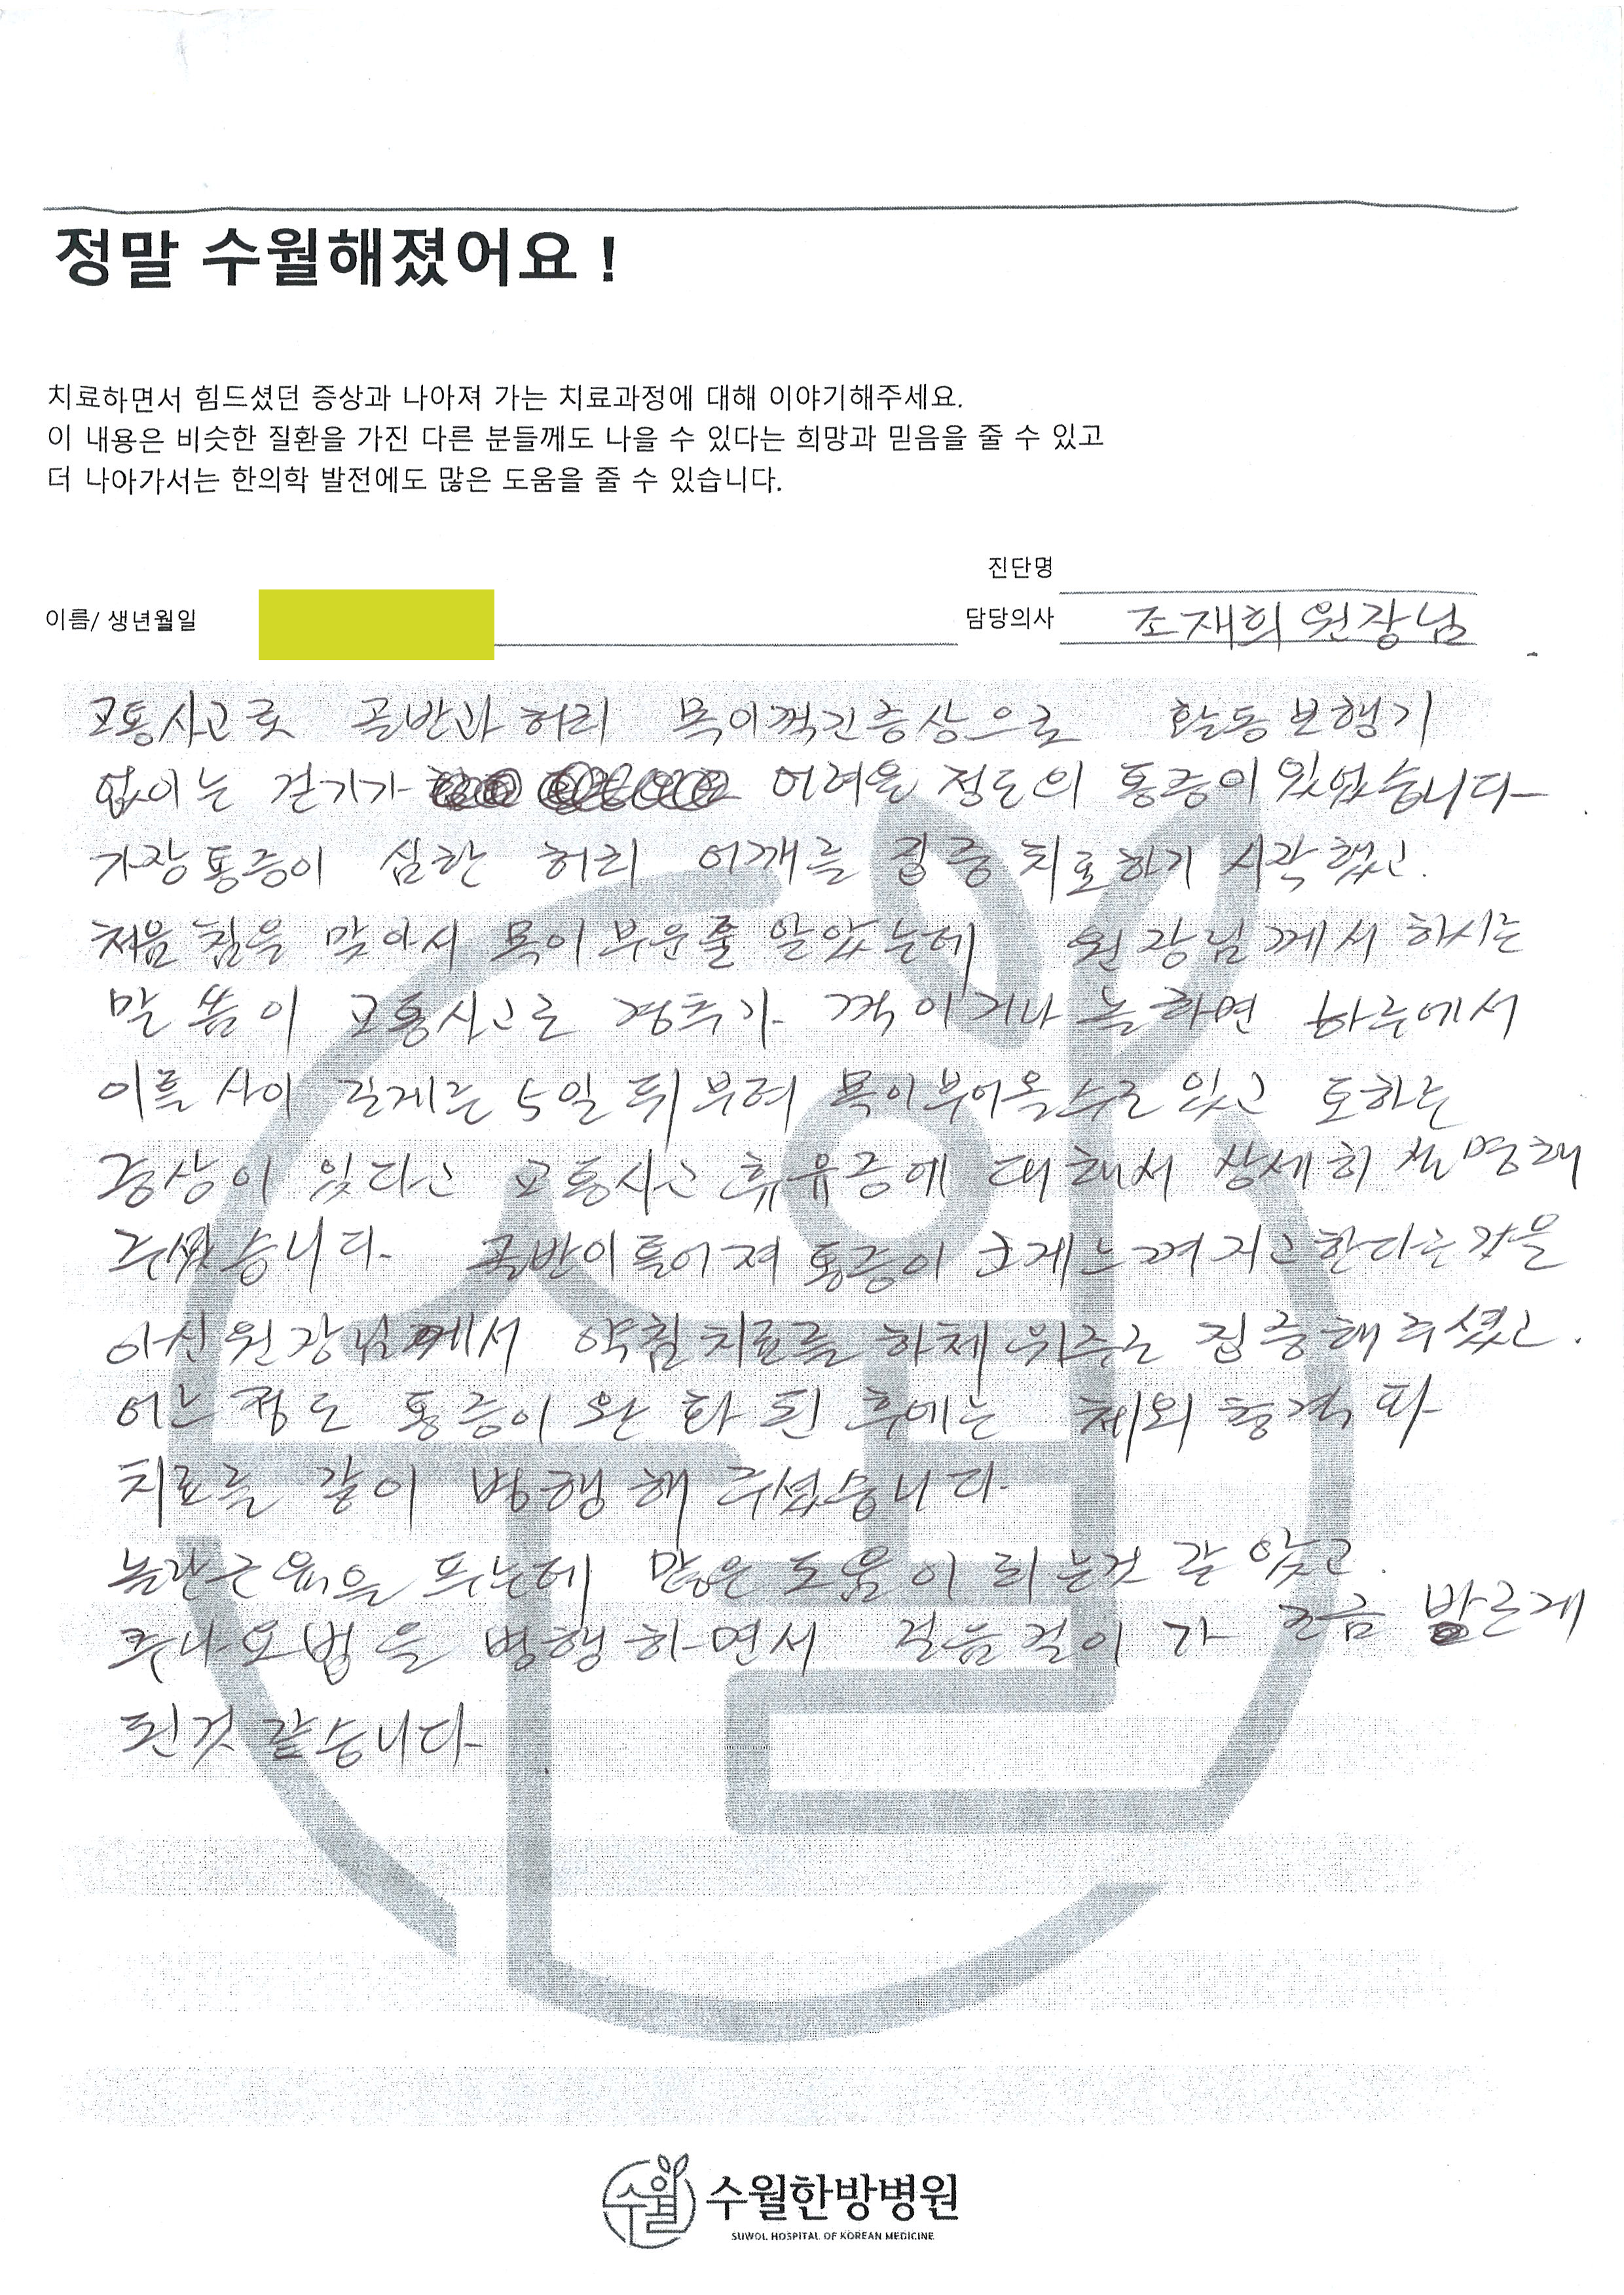 정말 수월해졌어요 !
치료하면서 힘드셨던 증상과 나아져 가는 치료과정에 대해 이야기해주세요.
이 내용은 비슷한 질환을 가진 다른 분들께도 나을 수 있다는 희망과 믿음을 줄 수 있고
더 나아가서는 한의학 발전에도 많은 도움을 줄 수 있습니다.
진단명
이름/ 생년월일
담당의사 조재희 원장님
교통사고로 골반과 허리 목이꺽긴증상으로 활동 보행기
없이는 걷기가 어려운 정도의 통증이 있었습니다
가장통증이 심한 허리 어깨를 집중 치료하기 시작했고.
처음 침을 맞아서 목이 부운줄 알았는데 원장님께서 하시는
말씀이 교통사고로 경추가 꺽이거나 놀라면 하루에서
이틀 사이 길게는 5일 뒤부터 목이부어올수도 있고 토하는
증상이 있다고 교통사고 휴유증에 대해서 상세히 설명해
주셨습니다. 골반이틀어져 통증이 크게느껴지고한다는것을
아신원장님께서 약침치료를 하체위주로 집중해주셨고.
어느정도 통증이 완화된 후에는 체외충격파
치료를 같이 병행해 주셨습니다.
놀란근육을 푸는데 많은도움이 되는것 같았고.
추나요법을 병행하면서 걸음걸이가 조금 바르게
된것 같습니다
수월
수월한방병원
SUWOL HOSPITAL OF KOREAN MEDICINE